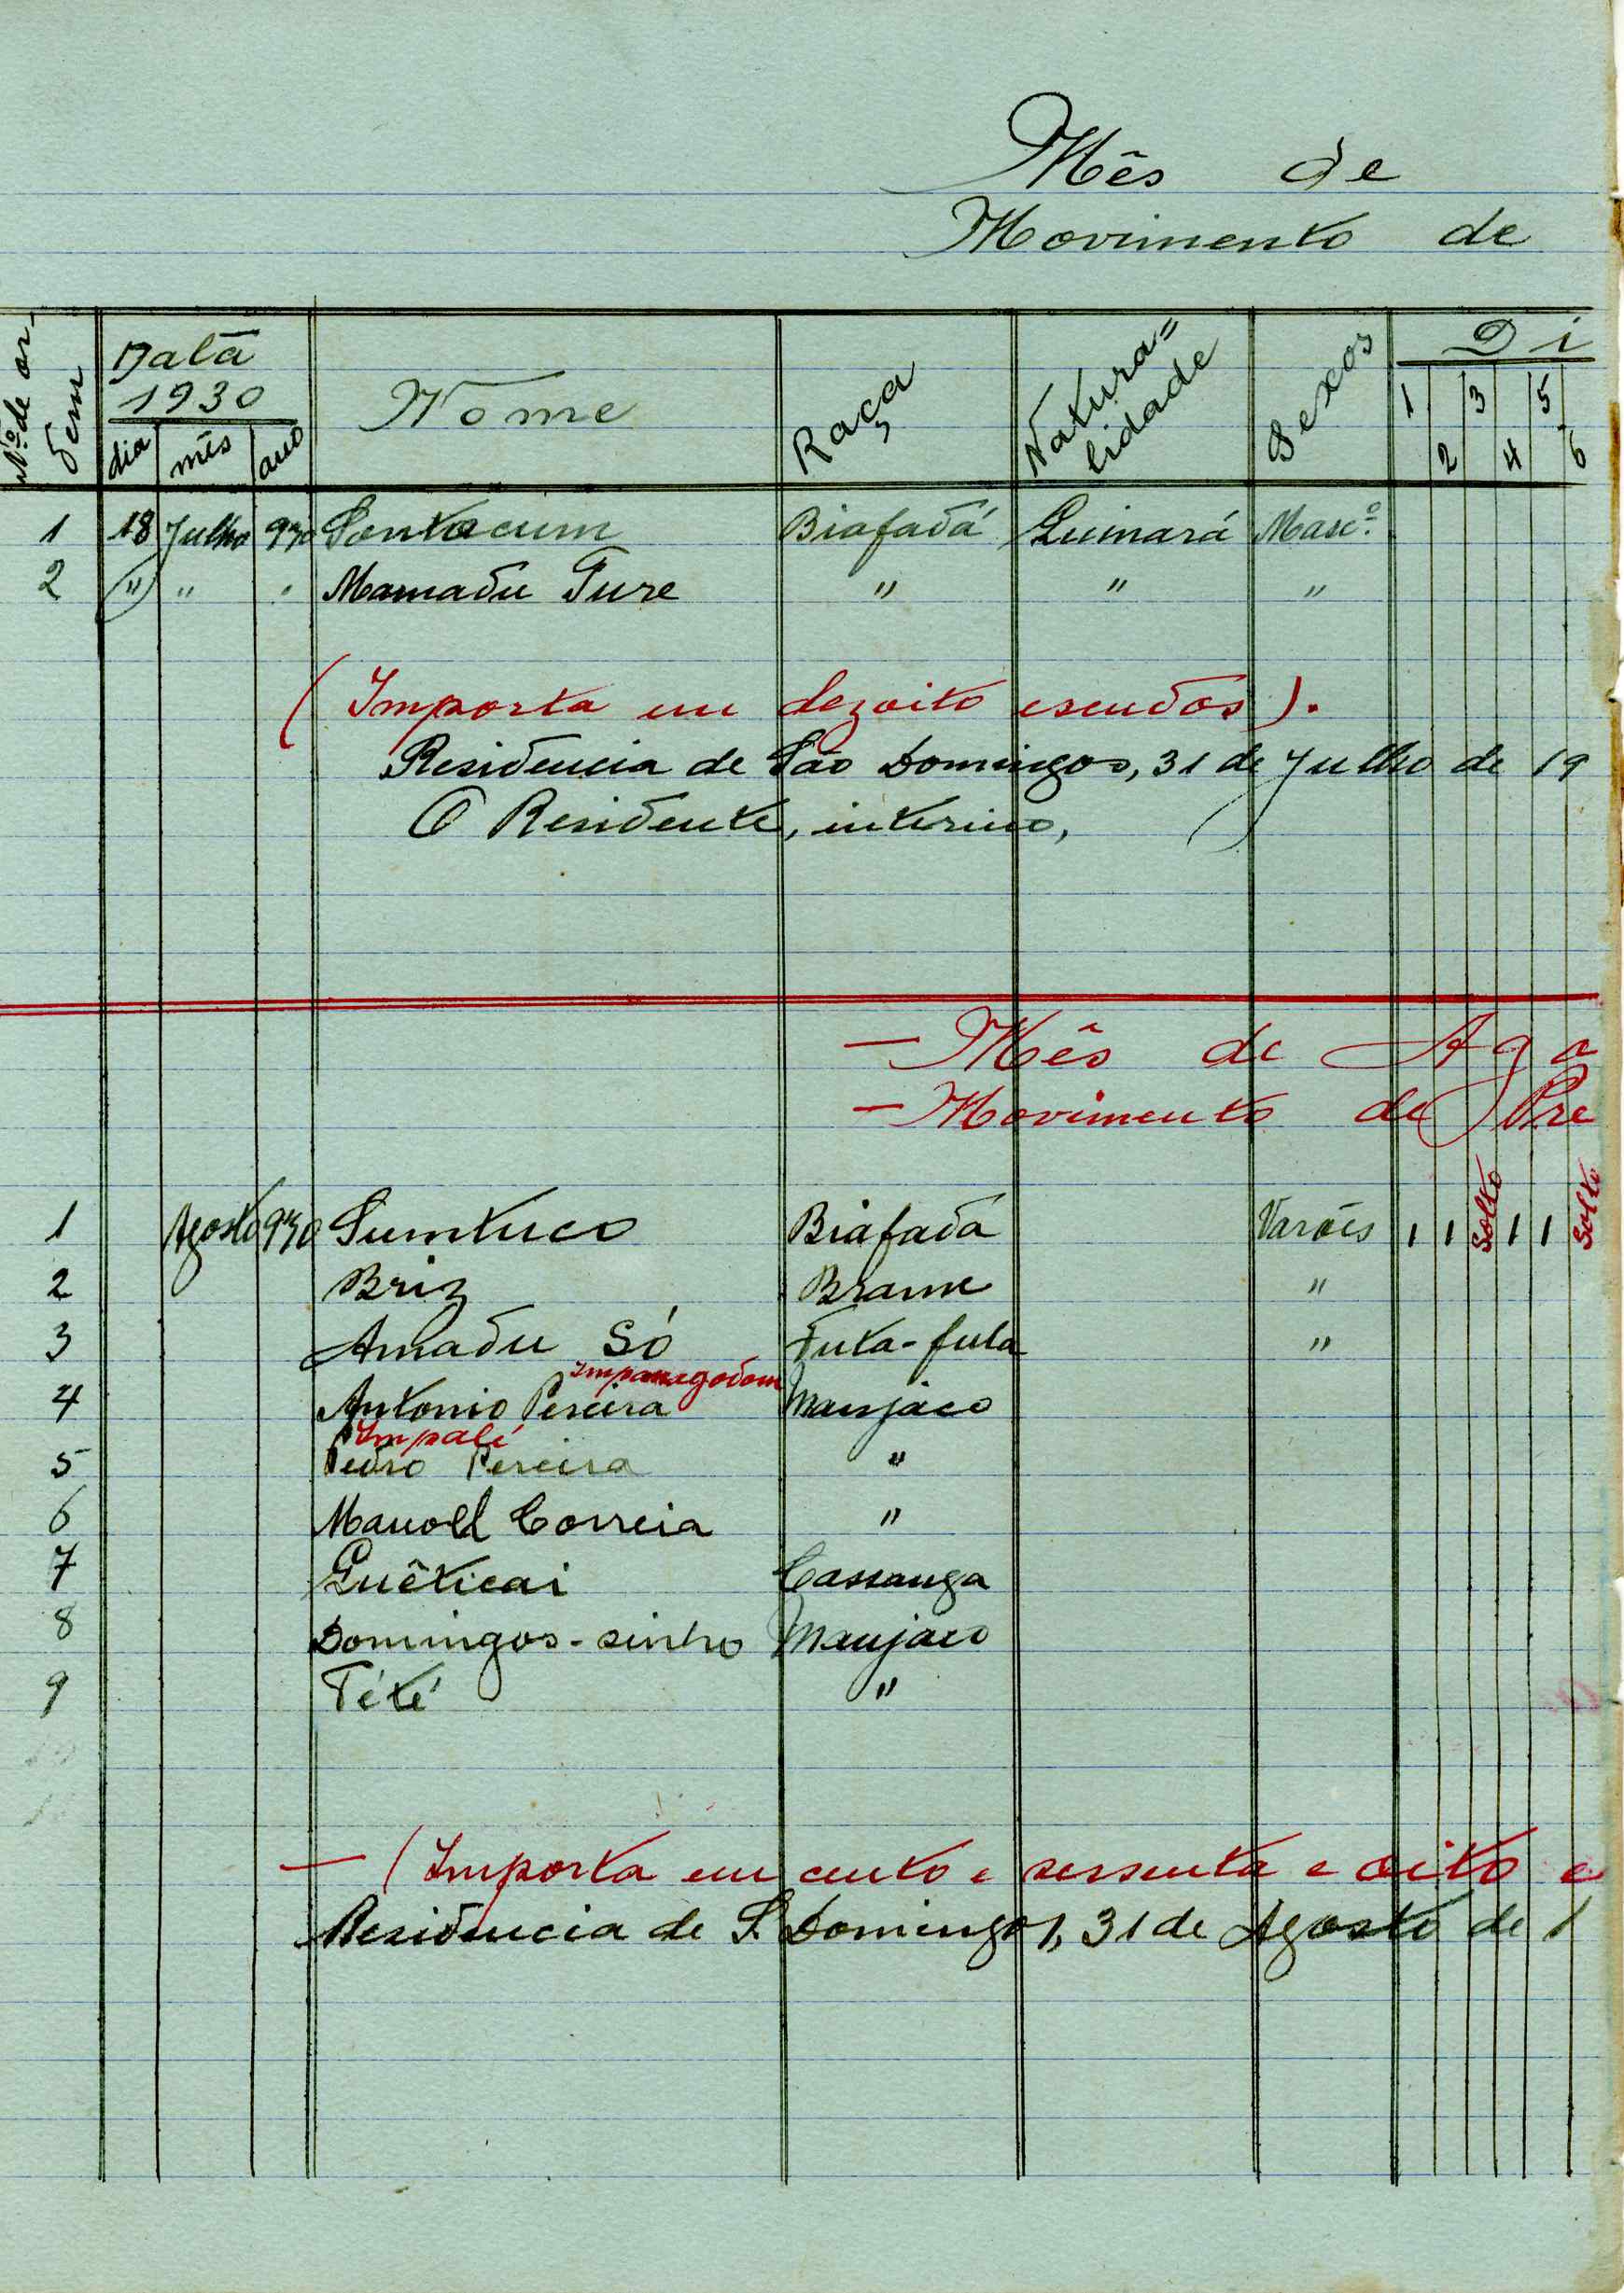 Mês de
Movimento de
Nº de or-
dem
Data
1930
dia mês ano
Nome
Raça
Natura=
lidade
Sexos
Di
1 2 3 4 5 6
1 18 Julho 930 Sontocum Biafadá Guinará Masc.º
2 " " " Mamadu Ture " " "
(Importa em dezoito escudos).
Residencia de São Domingos, 31 de Julho de 19
O Residente, interino,
— Mês de Ago
— Movimento de Pre
1 Agosto 930 Sumtuco Biafada Varões 1 1 Solto 1 1 Solto
2 Briz Brame "
3 Amadu Só Futa-fula "
Impanagodom
4 Antonio Pereira Manjaco
Impalé
5 Pedro Pereira "
6 Manoel Correia "
7 Guêticai Cassanga
8 Domingos-sinho Manjaco
9 Tété "
— (Importa em cento e sessenta e oito e
Residencia de S. Domingos, 31 de Agosto de 1